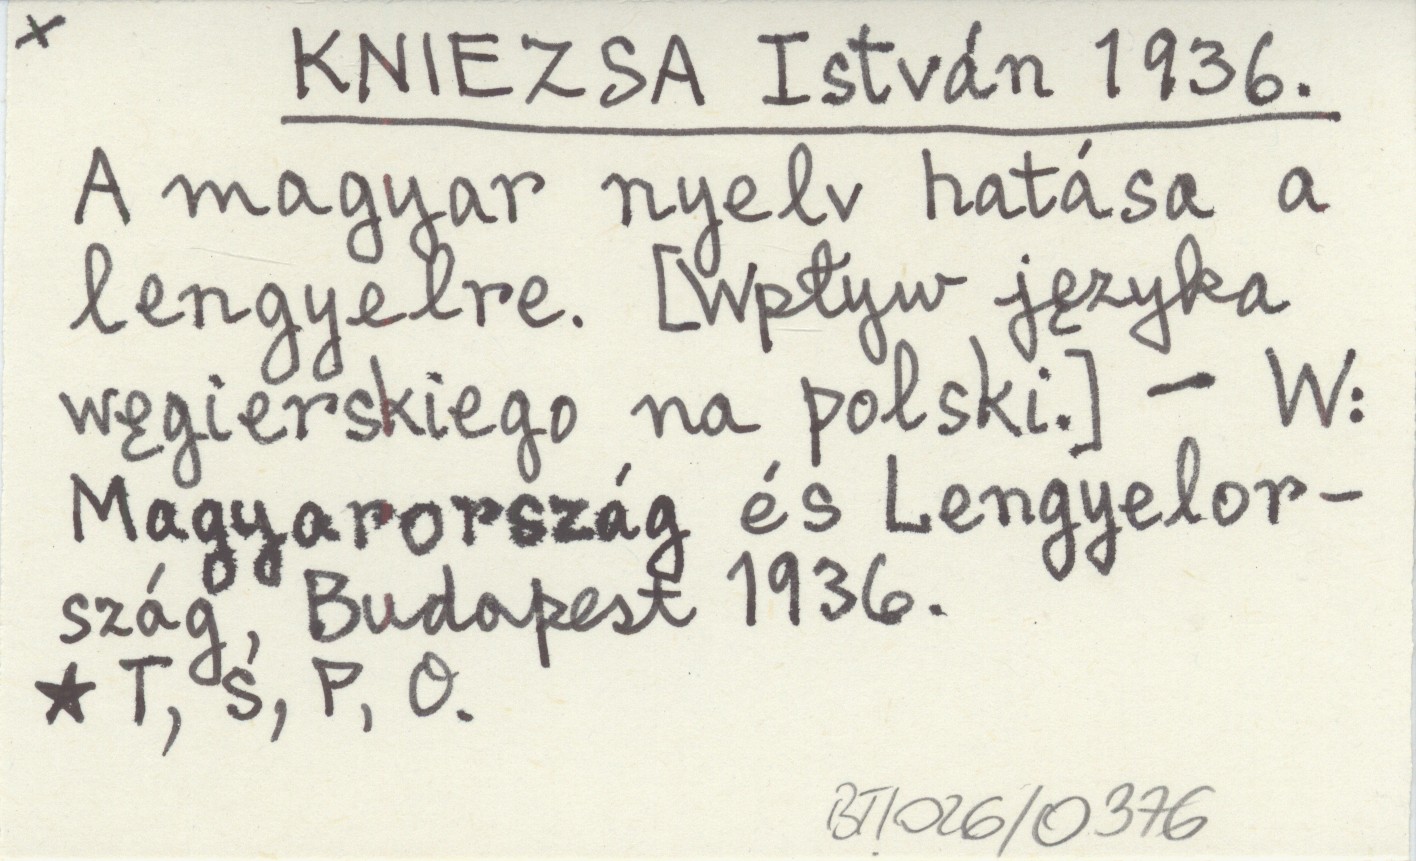 x
KNIEZSA István 1936.
A magyar nyelv hatása a
lengyelre. [Wpływ języka
węgierskiego na polski.] — W:
Magyarország és Lengyelor-
szág, Budapest 1936.
★ T, Ś, P, O.
BT/026/0376